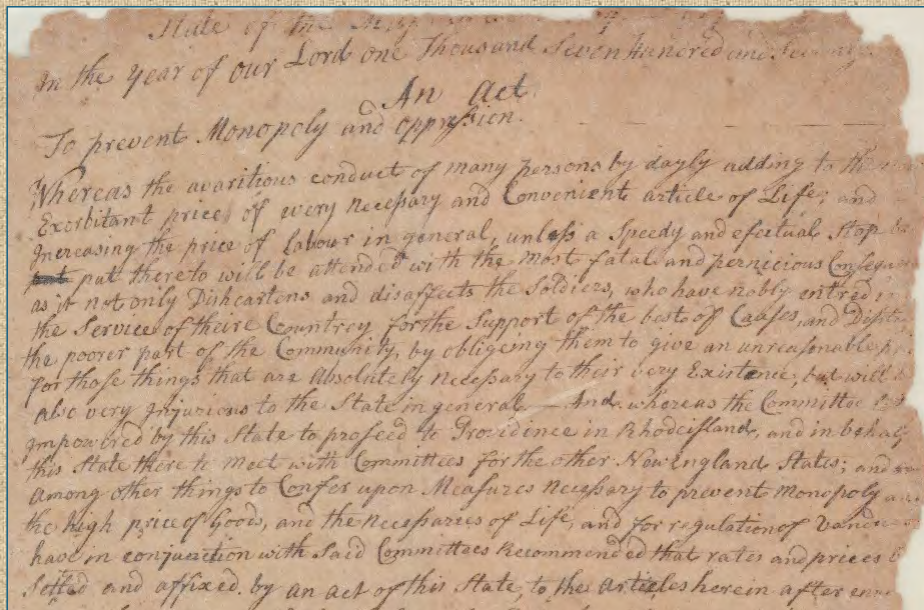 State of the
In the Year of our Lord one Thousand Seven Hundred and Seventy
An Act
To prevent Monopoly and Oppression.
Whereas the avaritious conduct of many persons by dayly adding to the
Exorbitant price of every necessary and Convenient article of Life; and
Increasing the price of Labour in general, unless a Speedy and efectual Stop be
put thereto will be attended with the most fatal and pernicious Consequ
as it not only Disheartens and disaffects the Soldiers, who have nobly entred in
the Service of theire Countrey for the Support of the best of Causes, and Distr
the poorer part of the Community, by obligeing them to give an unreasonable pr
for those things that are Absolutely necessary to their very Existence, but will
also very Injurious to the State in general — And whereas the Committee
Impowered by this State to profeed to Providince in Rhodeisland, and in behalf
this State there to meet with Committees for the other Newingland States; and
among other things to Confer upon Measures necessary to prevent Monopoly
the high price of Goods, and the necessaries of Life, and for regulation of Vandues
have in conjunction with said Committees Recommended that rates and prices b
Settled and affixed by an act of this State, to the articles herein after en